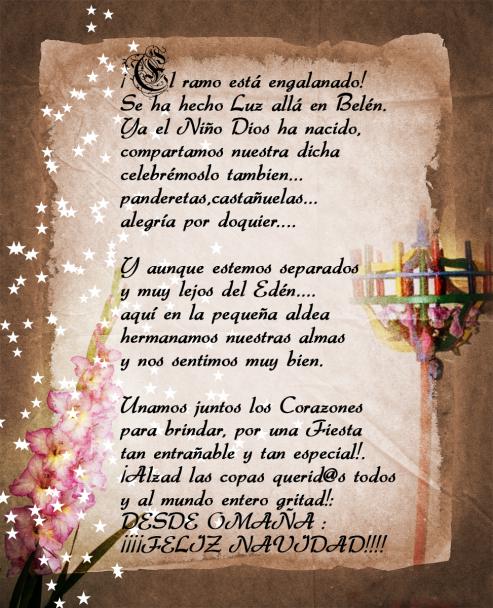 ¡El ramo está engalanado!
Se ha hecho Luz allá en Belén.
Ya el Niño Dios ha nacido,
compartamos nuestra dicha
celebrémoslo tambien...
panderetas,castañuelas...
alegría por doquier....
Y aunque estemos separados
y muy lejos del Edén....
aquí en la pequeña aldea
hermanamos nuestras almas
y nos sentimos muy bien.
Unamos juntos los Corazones
para brindar, por una Fiesta
tan entrañable y tan especial!.
¡Alzad las copas querid@s todos
y al mundo entero gritad!:
DESDE OMAÑA :
¡¡¡¡FELIZ NAVIDAD!!!!